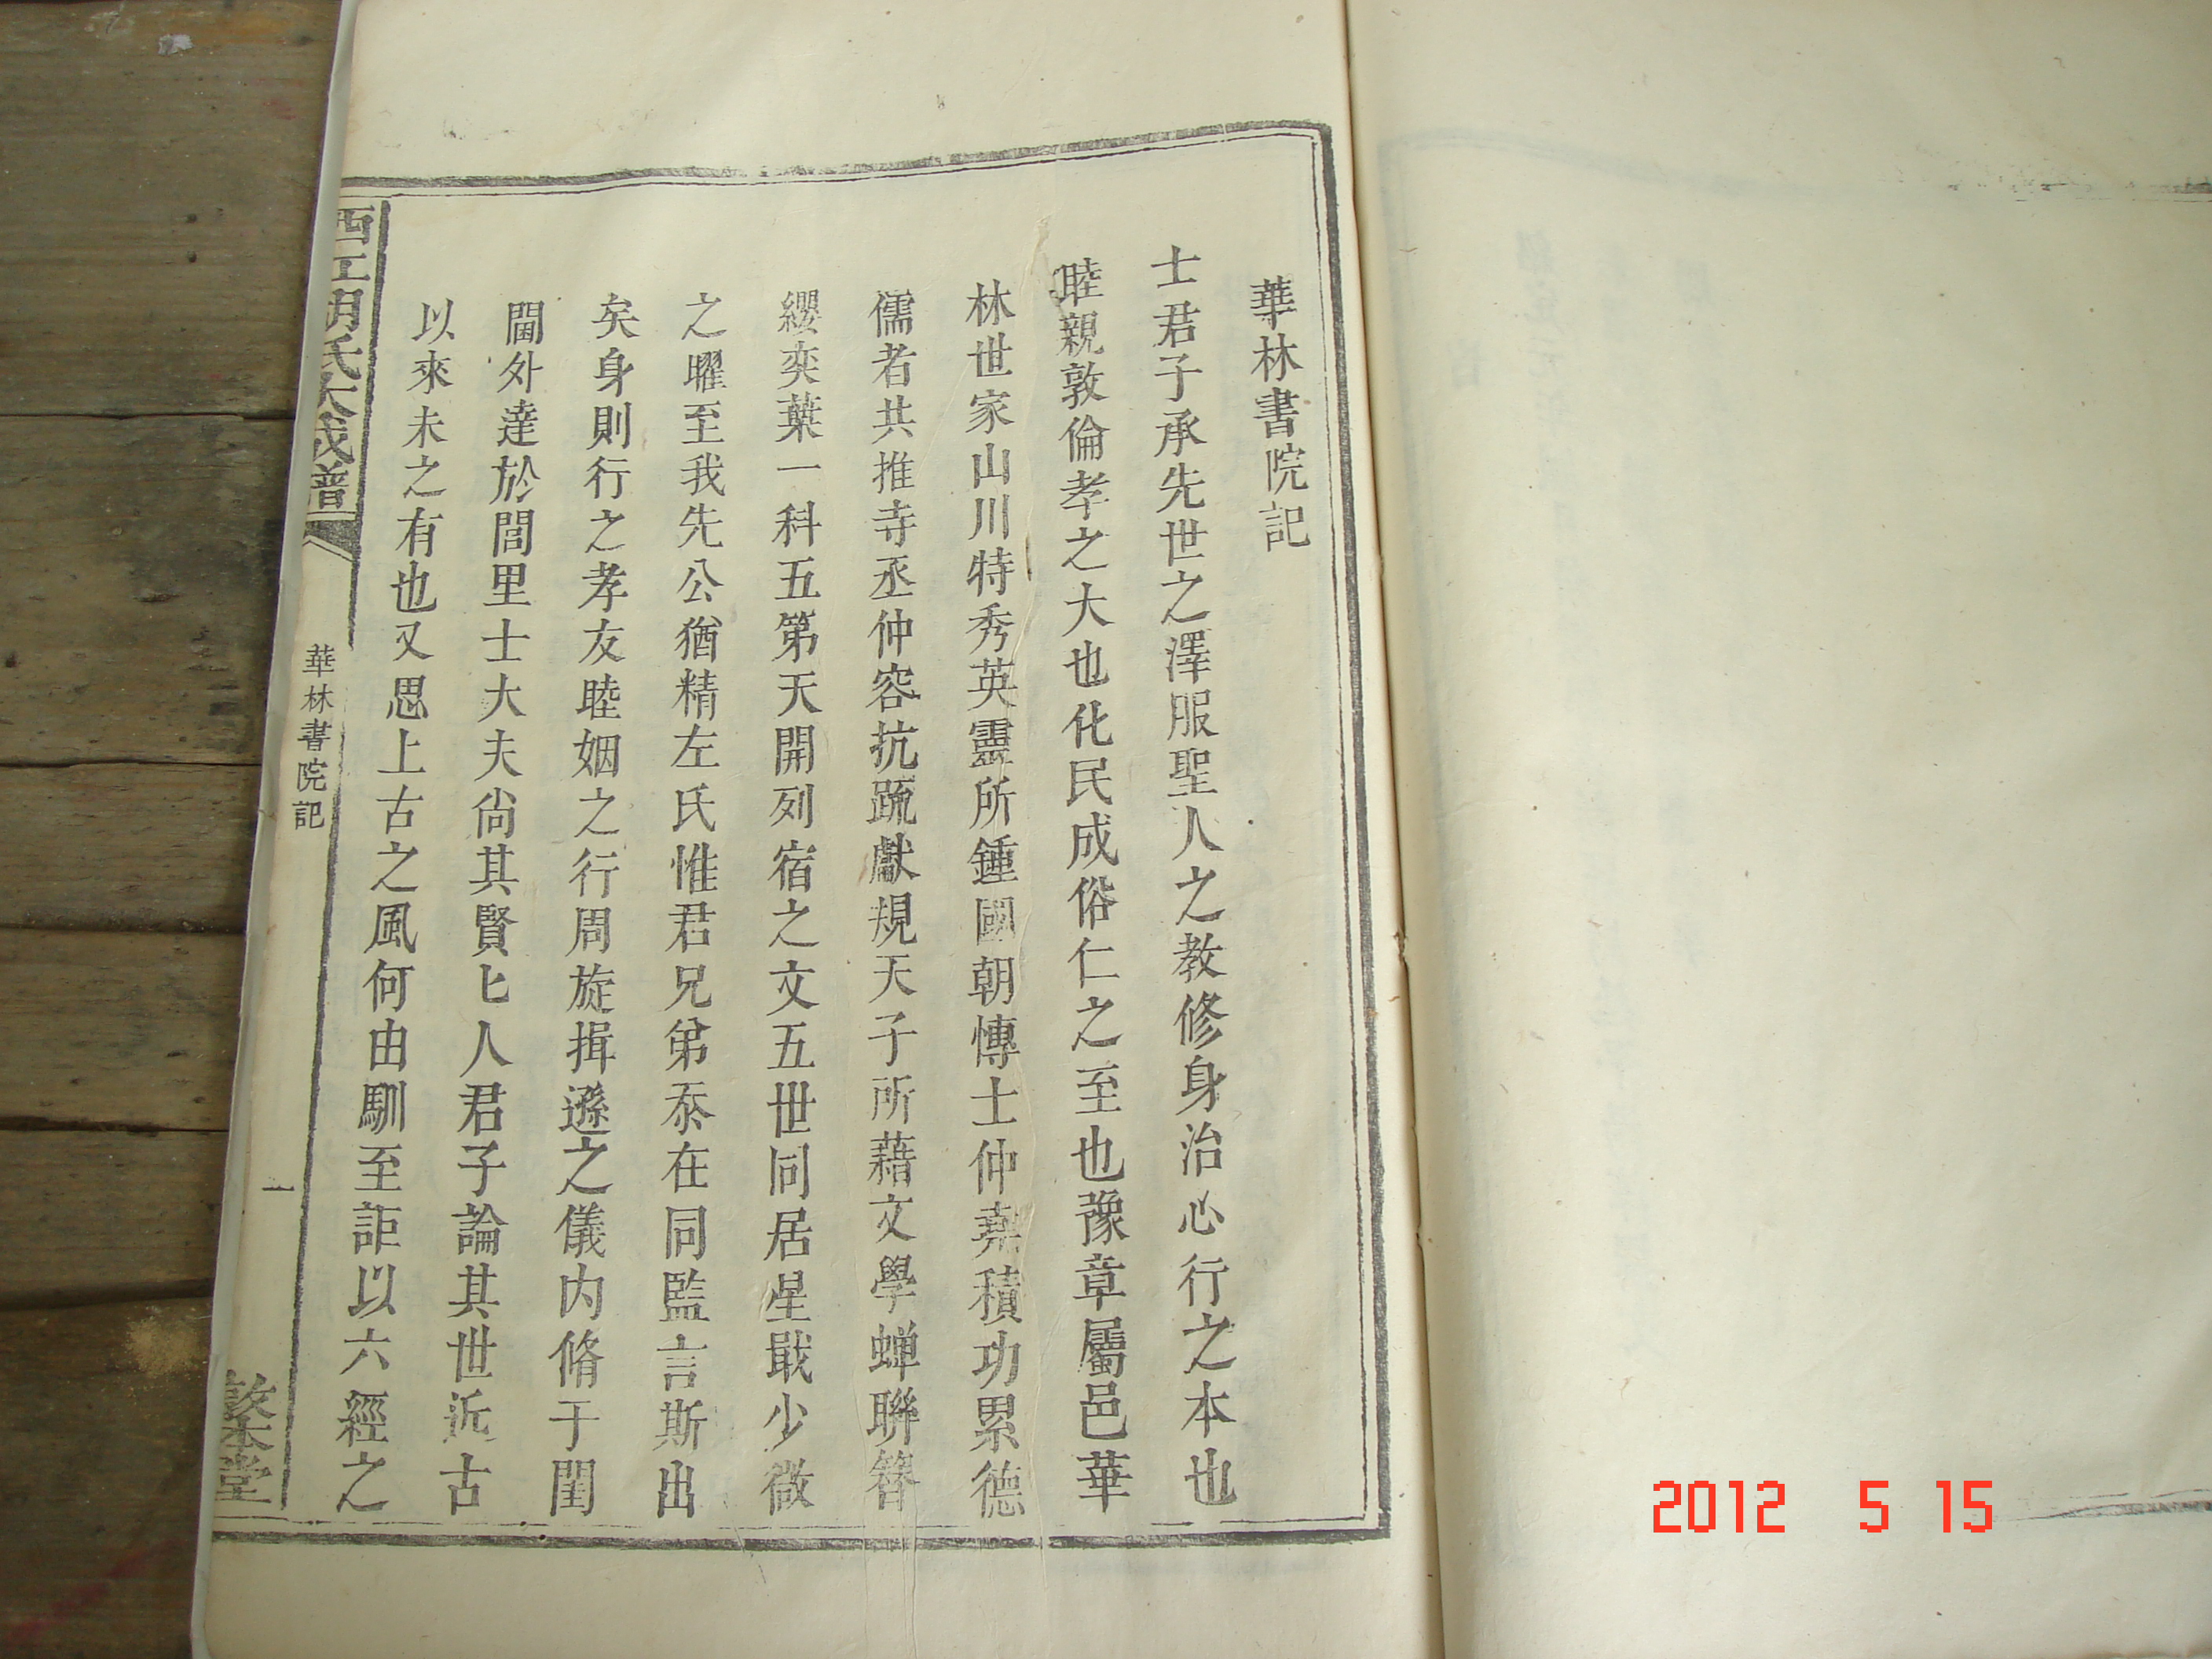 華林書院記
士君子承先世之澤服聖人之教修身治心行之本也
睦親敦倫孝之大也化民成俗仁之至也豫章屬邑華
林世家山川特秀英靈所鍾國朝慱士仲堯積功累德
儒者共推寺丞仲容抗䟽獻規天子所藉文學蟬聯簪
纓奕葉一科五第天開列宿之文五世同居星戢少微
之曜至我先公猶精左氏惟君兄弟忝在同監言斯出
矣身則行之孝友睦姻之行周旋揖遜之儀内脩于閨
閫外達於閭里士大夫尙其賢匕人君子論其世近古
以來未之有也又思上古之風何由馴至詎以六經之
西江胡氏大成譜
華林書院記
一
敦本堂
2012 5 15